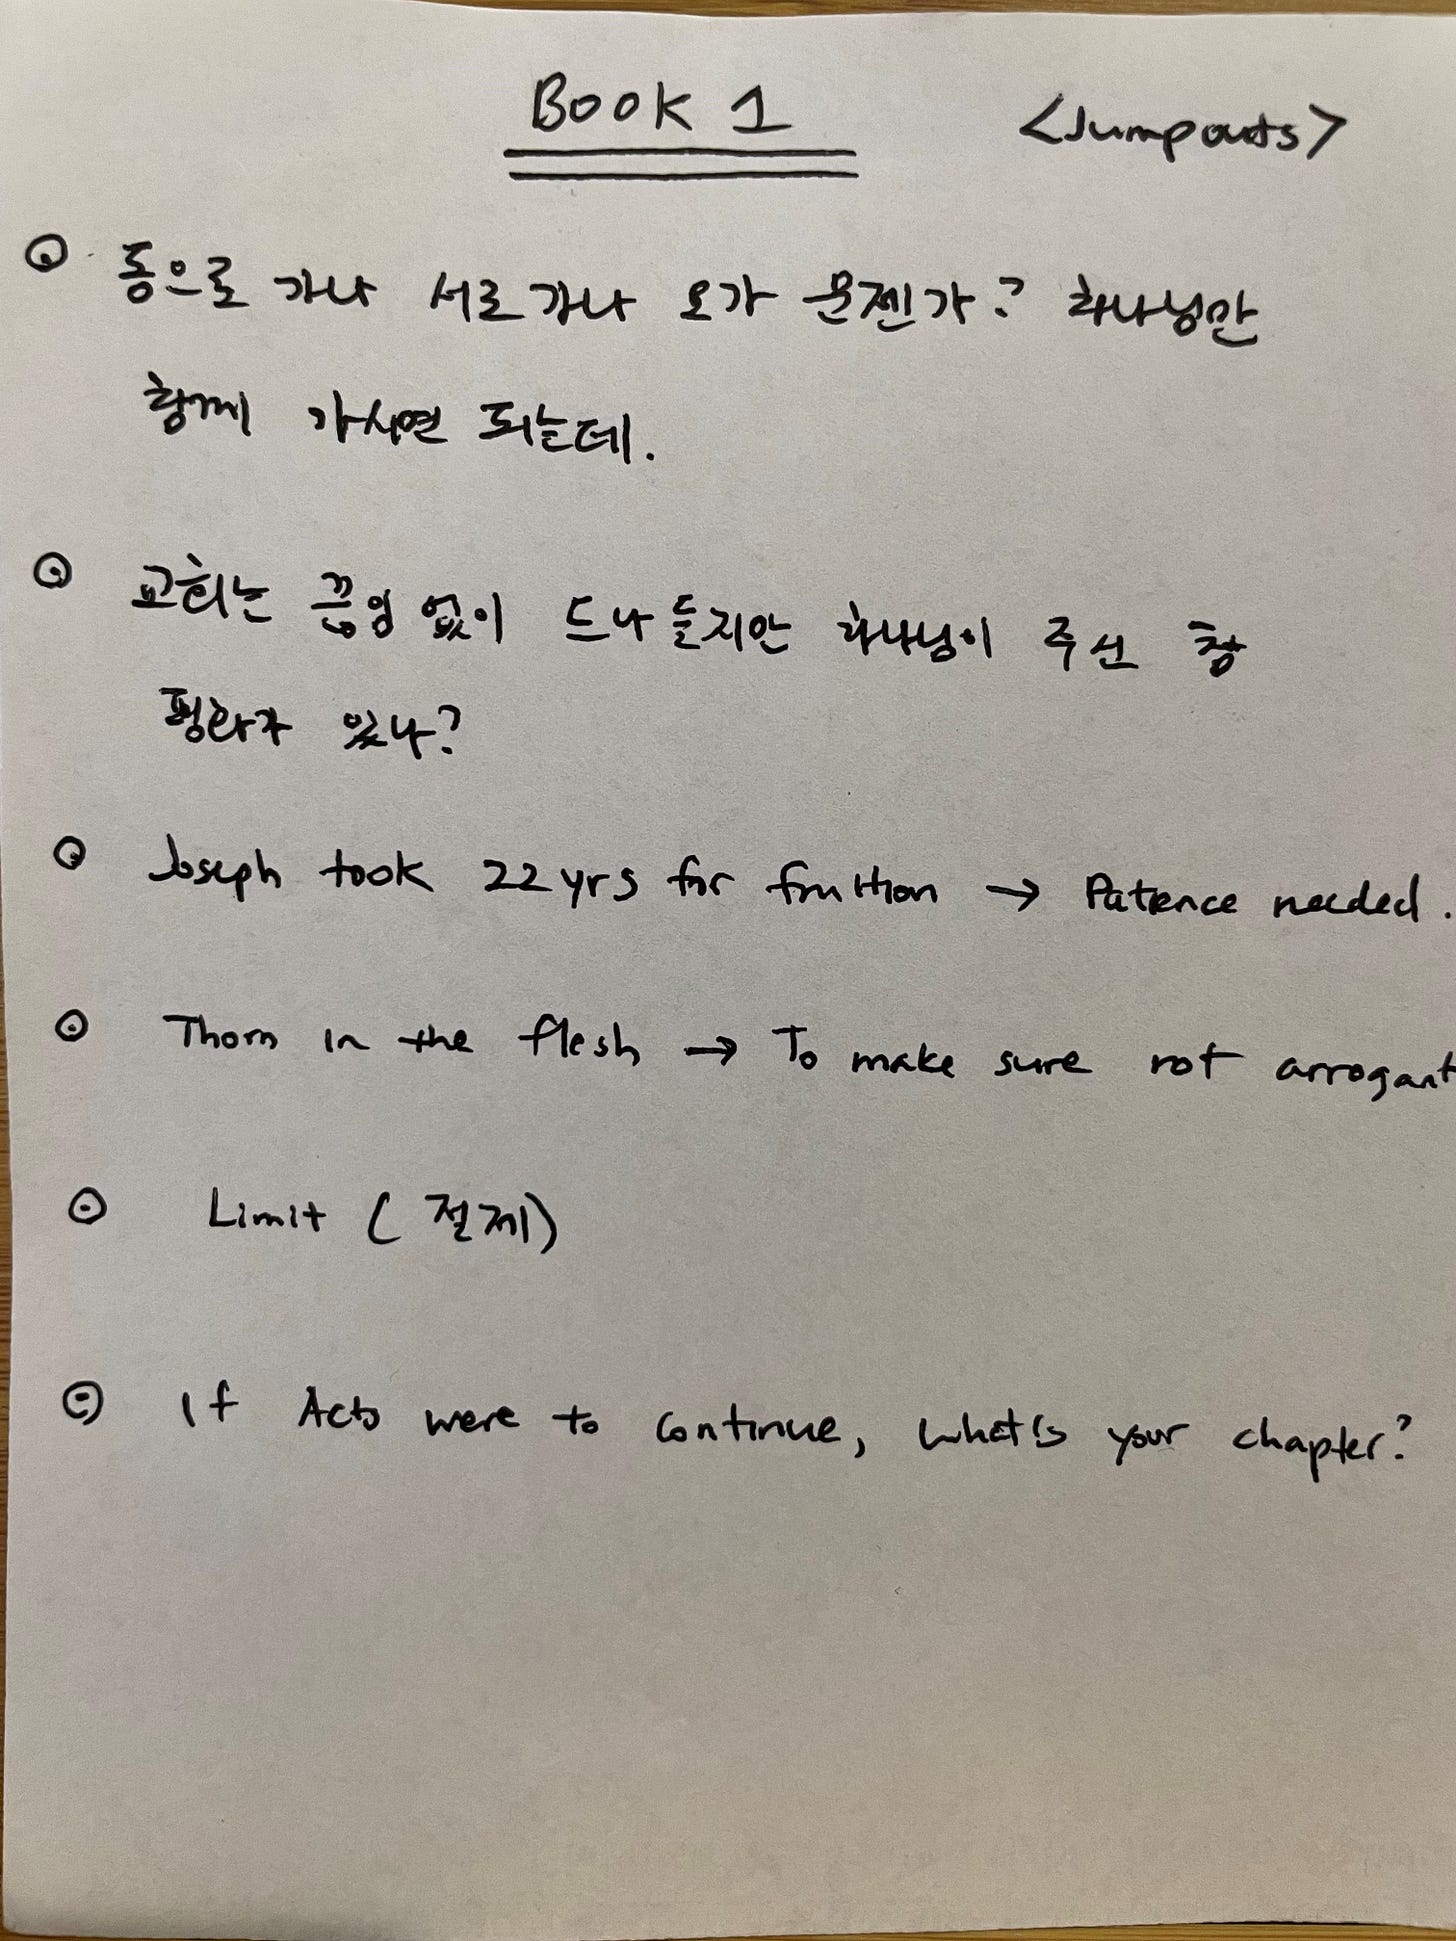 Book 1 <Jumpouts>
동으로 가나 서로 가나 모가 문젠가? 하나님만
함께 가시면 되는데.
교회는 끊임없이 드나들지만 하나님이 주신 참
평화가 있나?
Joseph took 22 yrs for fruition → Patience needed.
Thorn in the flesh → To make sure not arrogant
Limit (절제)
If Acts were to continue, what's your chapter?